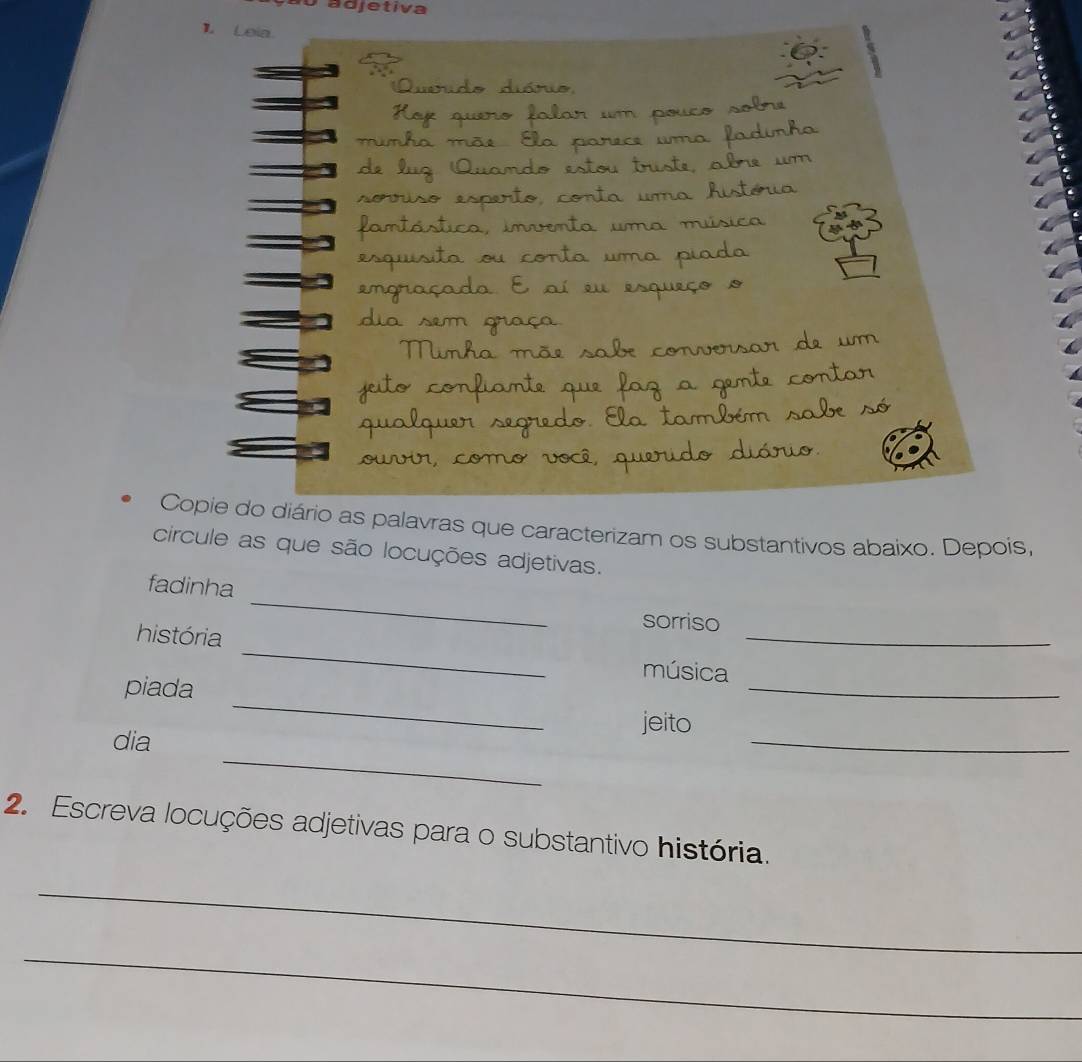 adjetiva
1. Leia.
Querido diário,
Hoje quero falar um pouco sobre
minha mãe. Ela parece uma fadinha
de luz. Quando estou triste, abre um
sorriso esperto, conta uma história
fantástica, inventa uma música
esquisita ou conta uma piada
engraçada. E aí eu esqueço o
dia sem graça.
Minha mãe sabe conversar de um
jeito confiante que faz a gente contar
qualquer segredo. Ela também sabe só
ouvir, como você, querido diário.
• Copie do diário as palavras que caracterizam os substantivos abaixo. Depois,
circule as que são locuções adjetivas.
fadinha
sorriso
história
música
piada
jeito
dia
2. Escreva locuções adjetivas para o substantivo história.